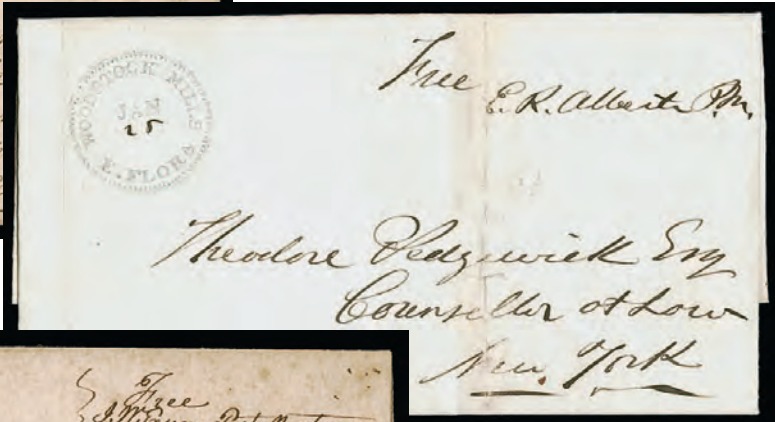 WOODSTOCK MILLS
JAN
25
E. FLORA
Free E.R. Alberti P.M.
Theodore Sedgwick Esq
Counsellor at Law
New York
Free